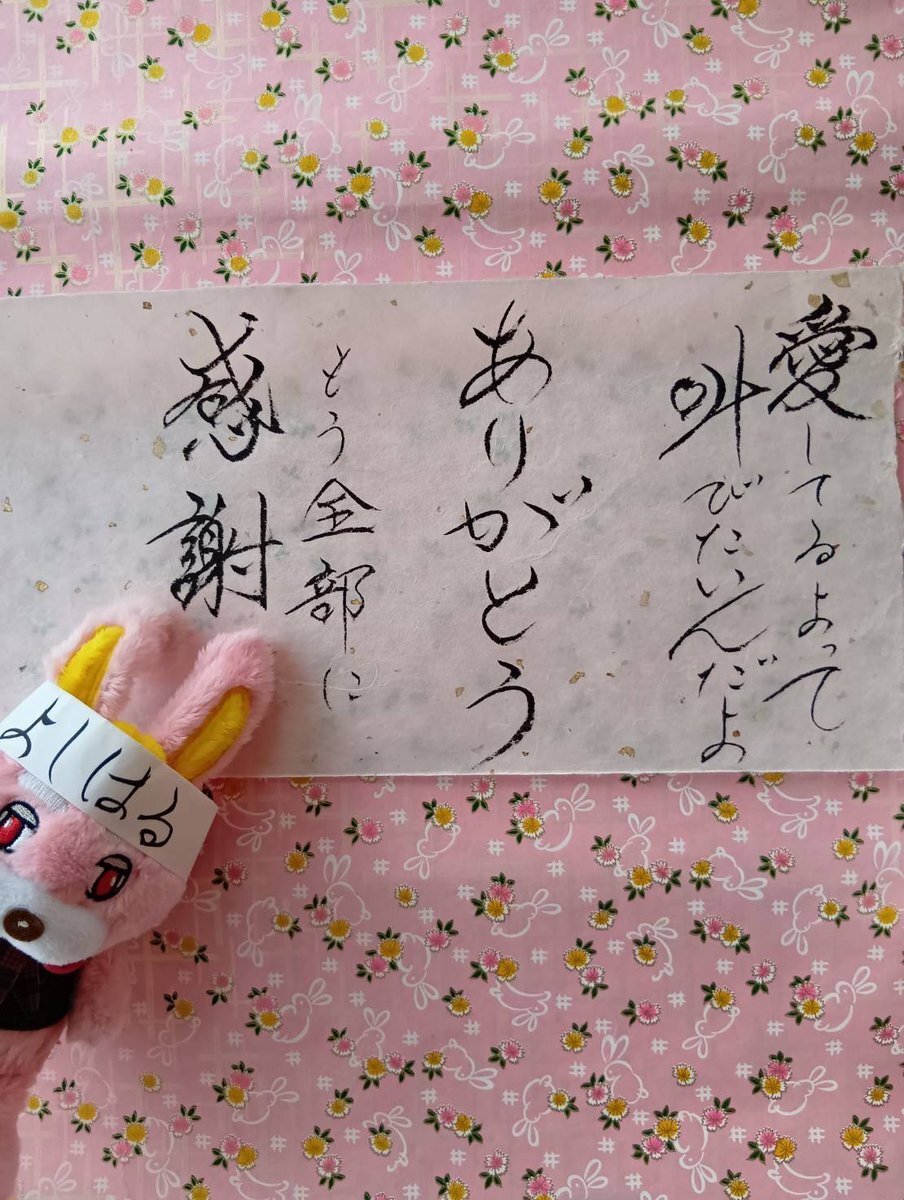 愛してるよって
叫びたいんだよ
ありがとう
とう全部に
感謝
よしはる